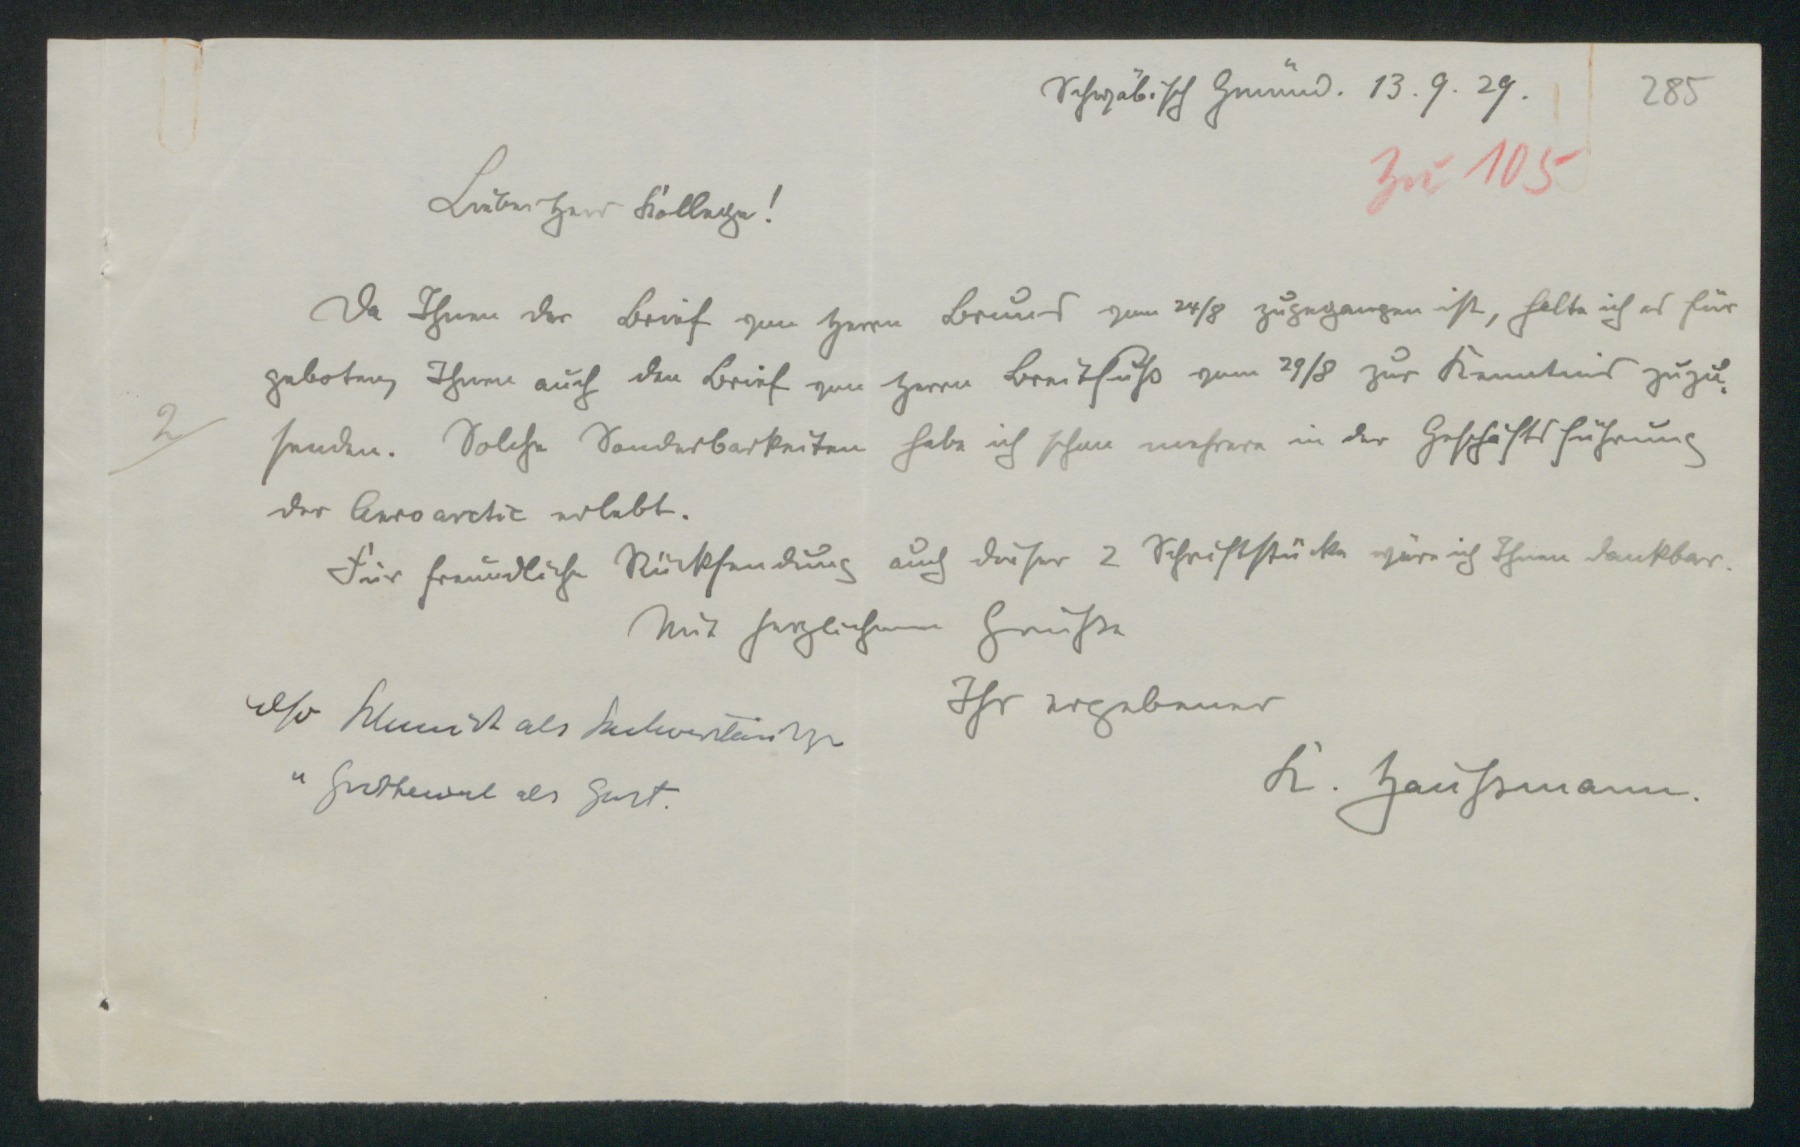 Schwäbisch Gmünd. 13.9.29.
285
zu 105
Lieber Herr Kollege!
Da Ihnen der Brief von Herrn Bruns vom 24/8 zugegangen ist, halte ich es für
geboten, Ihnen auch den Brief von Herrn Breitfuß vom 29/8 zur Kenntnis zuzu-
2
senden. Solche Sonderbarkeiten habe ich schon mehrere in der Geschäftsführung
der Aeroarctic erlebt.
Für freundliche Rücksendung auch dieser 2 Schriftstücke wäre ich Ihnen dankbar.
Mit herzlichem Gruße
Ihr ergebener
also Schmidt als Sachverständiger
" als Gast.
K. Haußmann.